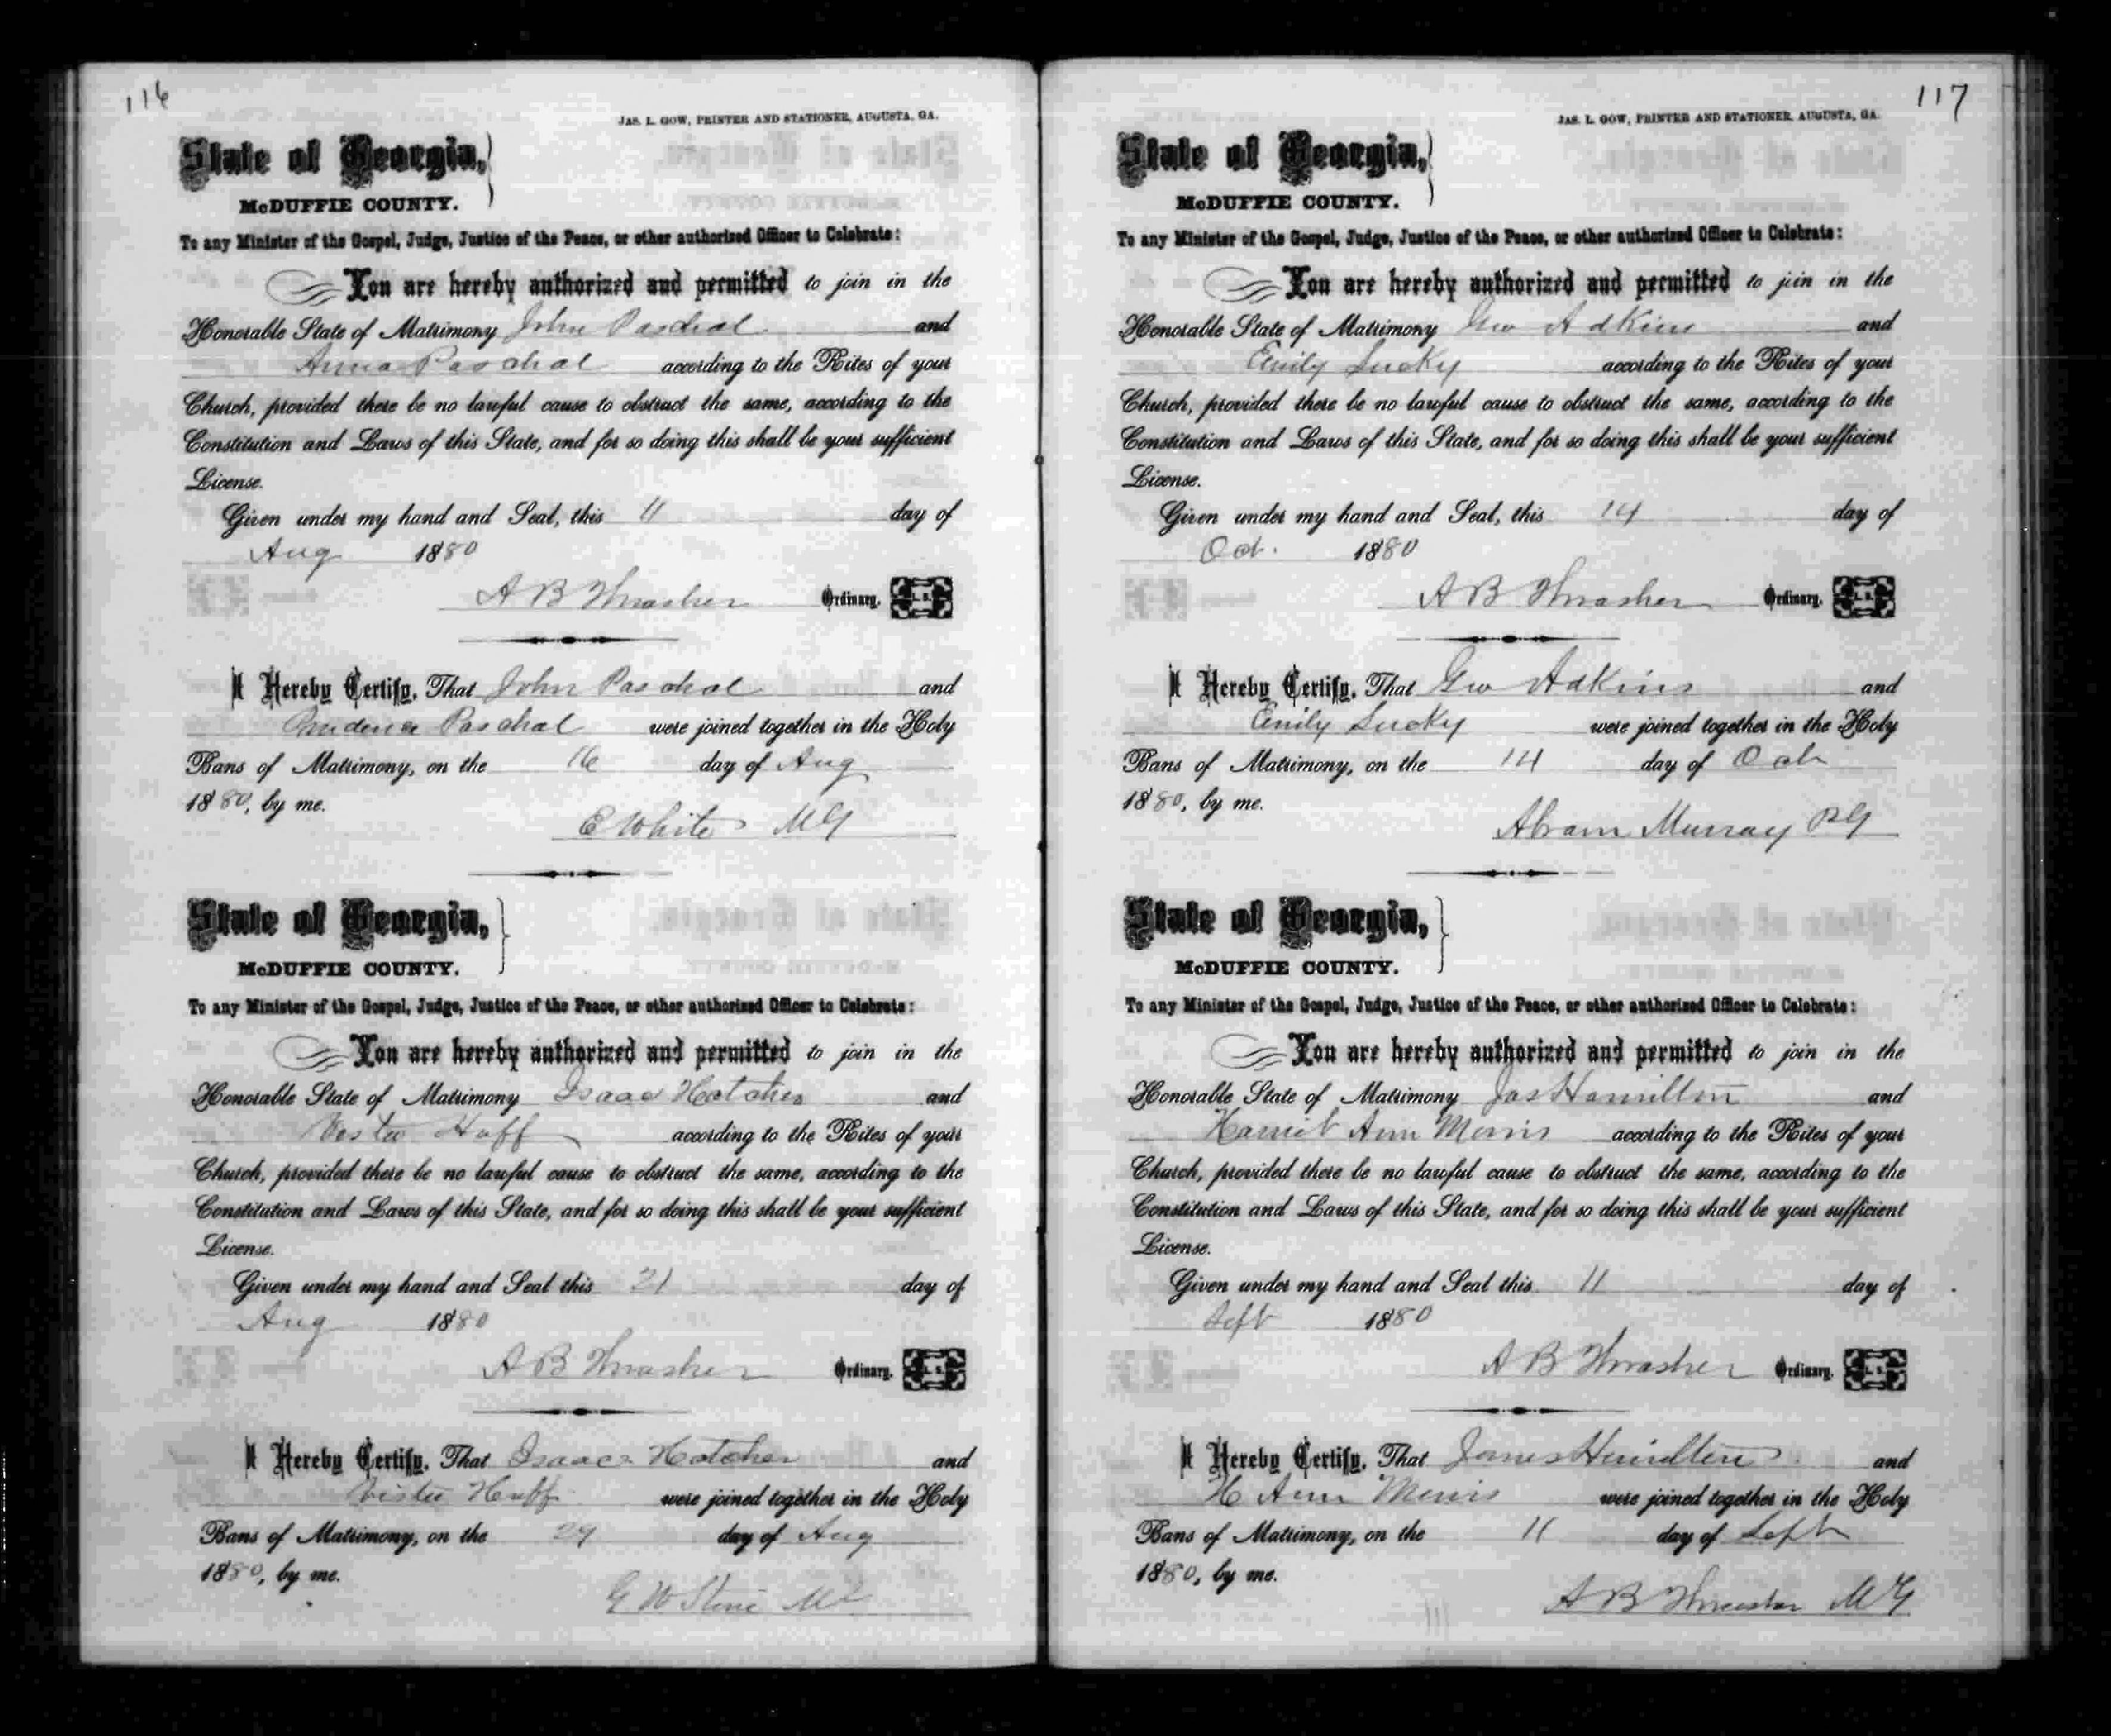 116
JAS. L. GOW, PRINTER AND STATIONER, AUGUSTA, GA.
State of Georgia,
McDUFFIE COUNTY.
To any Minister of the Gospel, Judge, Justice of the Peace, or other authorized Officer to Celebrate:
You are hereby authorized and permitted to join in the
Honorable State of Matrimony John Paschal and
Anna Paschal according to the Rites of your
Church, provided there be no lawful cause to obstruct the same, according to the
Constitution and Laws of this State, and for so doing this shall be your sufficient
License.
Given under my hand and Seal, this 11 day of
Aug 1880
A B Thrasher Ordinary. L. S.
I Hereby Certify, That John Paschal and
Paschal were joined together in the Holy
Bans of Matrimony, on the 16 day of Aug
1880, by me.
E White MG
State of Georgia,
McDUFFIE COUNTY.
To any Minister of the Gospel, Judge, Justice of the Peace, or other authorized Officer to Celebrate:
You are hereby authorized and permitted to join in the
Honorable State of Matrimony Isaac Hatcher and
Huff according to the Rites of your
Church, provided there be no lawful cause to obstruct the same, according to the
Constitution and Laws of this State, and for so doing this shall be your sufficient
License.
Given under my hand and Seal this 21 day of
Aug 1880
A B Thrasher Ordinary. L. S.
I Hereby Certify, That Isaac Hatcher and
Huff were joined together in the Holy
Bans of Matrimony, on the 29 day of Aug
1880, by me.
G W
117
JAS. L. GOW, PRINTER AND STATIONER, AUGUSTA, GA.
State of Georgia,
McDUFFIE COUNTY.
To any Minister of the Gospel, Judge, Justice of the Peace, or other authorized Officer to Celebrate:
You are hereby authorized and permitted to join in the
Honorable State of Matrimony Geo Adkins and
Emily Lucky according to the Rites of your
Church, provided there be no lawful cause to obstruct the same, according to the
Constitution and Laws of this State, and for so doing this shall be your sufficient
License.
Given under my hand and Seal, this 14 day of
Oct. 1880
A B Thrasher Ordinary. L. S.
I Hereby Certify, That Geo Adkins and
Emily Lucky were joined together in the Holy
Bans of Matrimony, on the 14 day of Oct
1880, by me.
Abram Murray
State of Georgia,
McDUFFIE COUNTY.
To any Minister of the Gospel, Judge, Justice of the Peace, or other authorized Officer to Celebrate:
You are hereby authorized and permitted to join in the
Honorable State of Matrimony Jas Hamilton and
Harriet Ann Morris according to the Rites of your
Church, provided there be no lawful cause to obstruct the same, according to the
Constitution and Laws of this State, and for so doing this shall be your sufficient
License.
Given under my hand and Seal this 11 day of
Sept 1880
A B Thrasher Ordinary. L. S.
I Hereby Certify, That James Hamilton and
H Ann Morris were joined together in the Holy
Bans of Matrimony, on the 11 day of Sept
1880, by me.
A B Thrasher MG